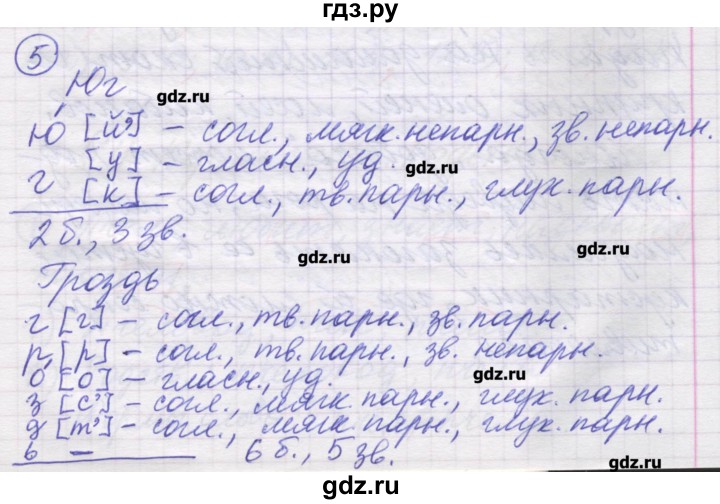 гдз.ру
5
Юг
gdz.ru
gdz.ru
ю [й'] – согл., мягк. непарн., зв. непарн.
[у] – гласн., уд.
gdz.ru
г [к] – согл., тв. парн., глух. парн.
2 б., 3 зв.
gdz.ru
gdz.ru
Гроздь
г [г] – согл., тв. парн., зв. парн.
gdz.ru
р [р] – согл., тв. парн., зв. непарн.
о [о] – гласн., уд.
gdz.ru
з [с'] – согл., мягк. парн., глух. парн.
gdz.ru
д [т'] – согл., мягк. парн., глух. парн.
ь – 6 б., 5 зв.
gdz.ru
gdz.ru